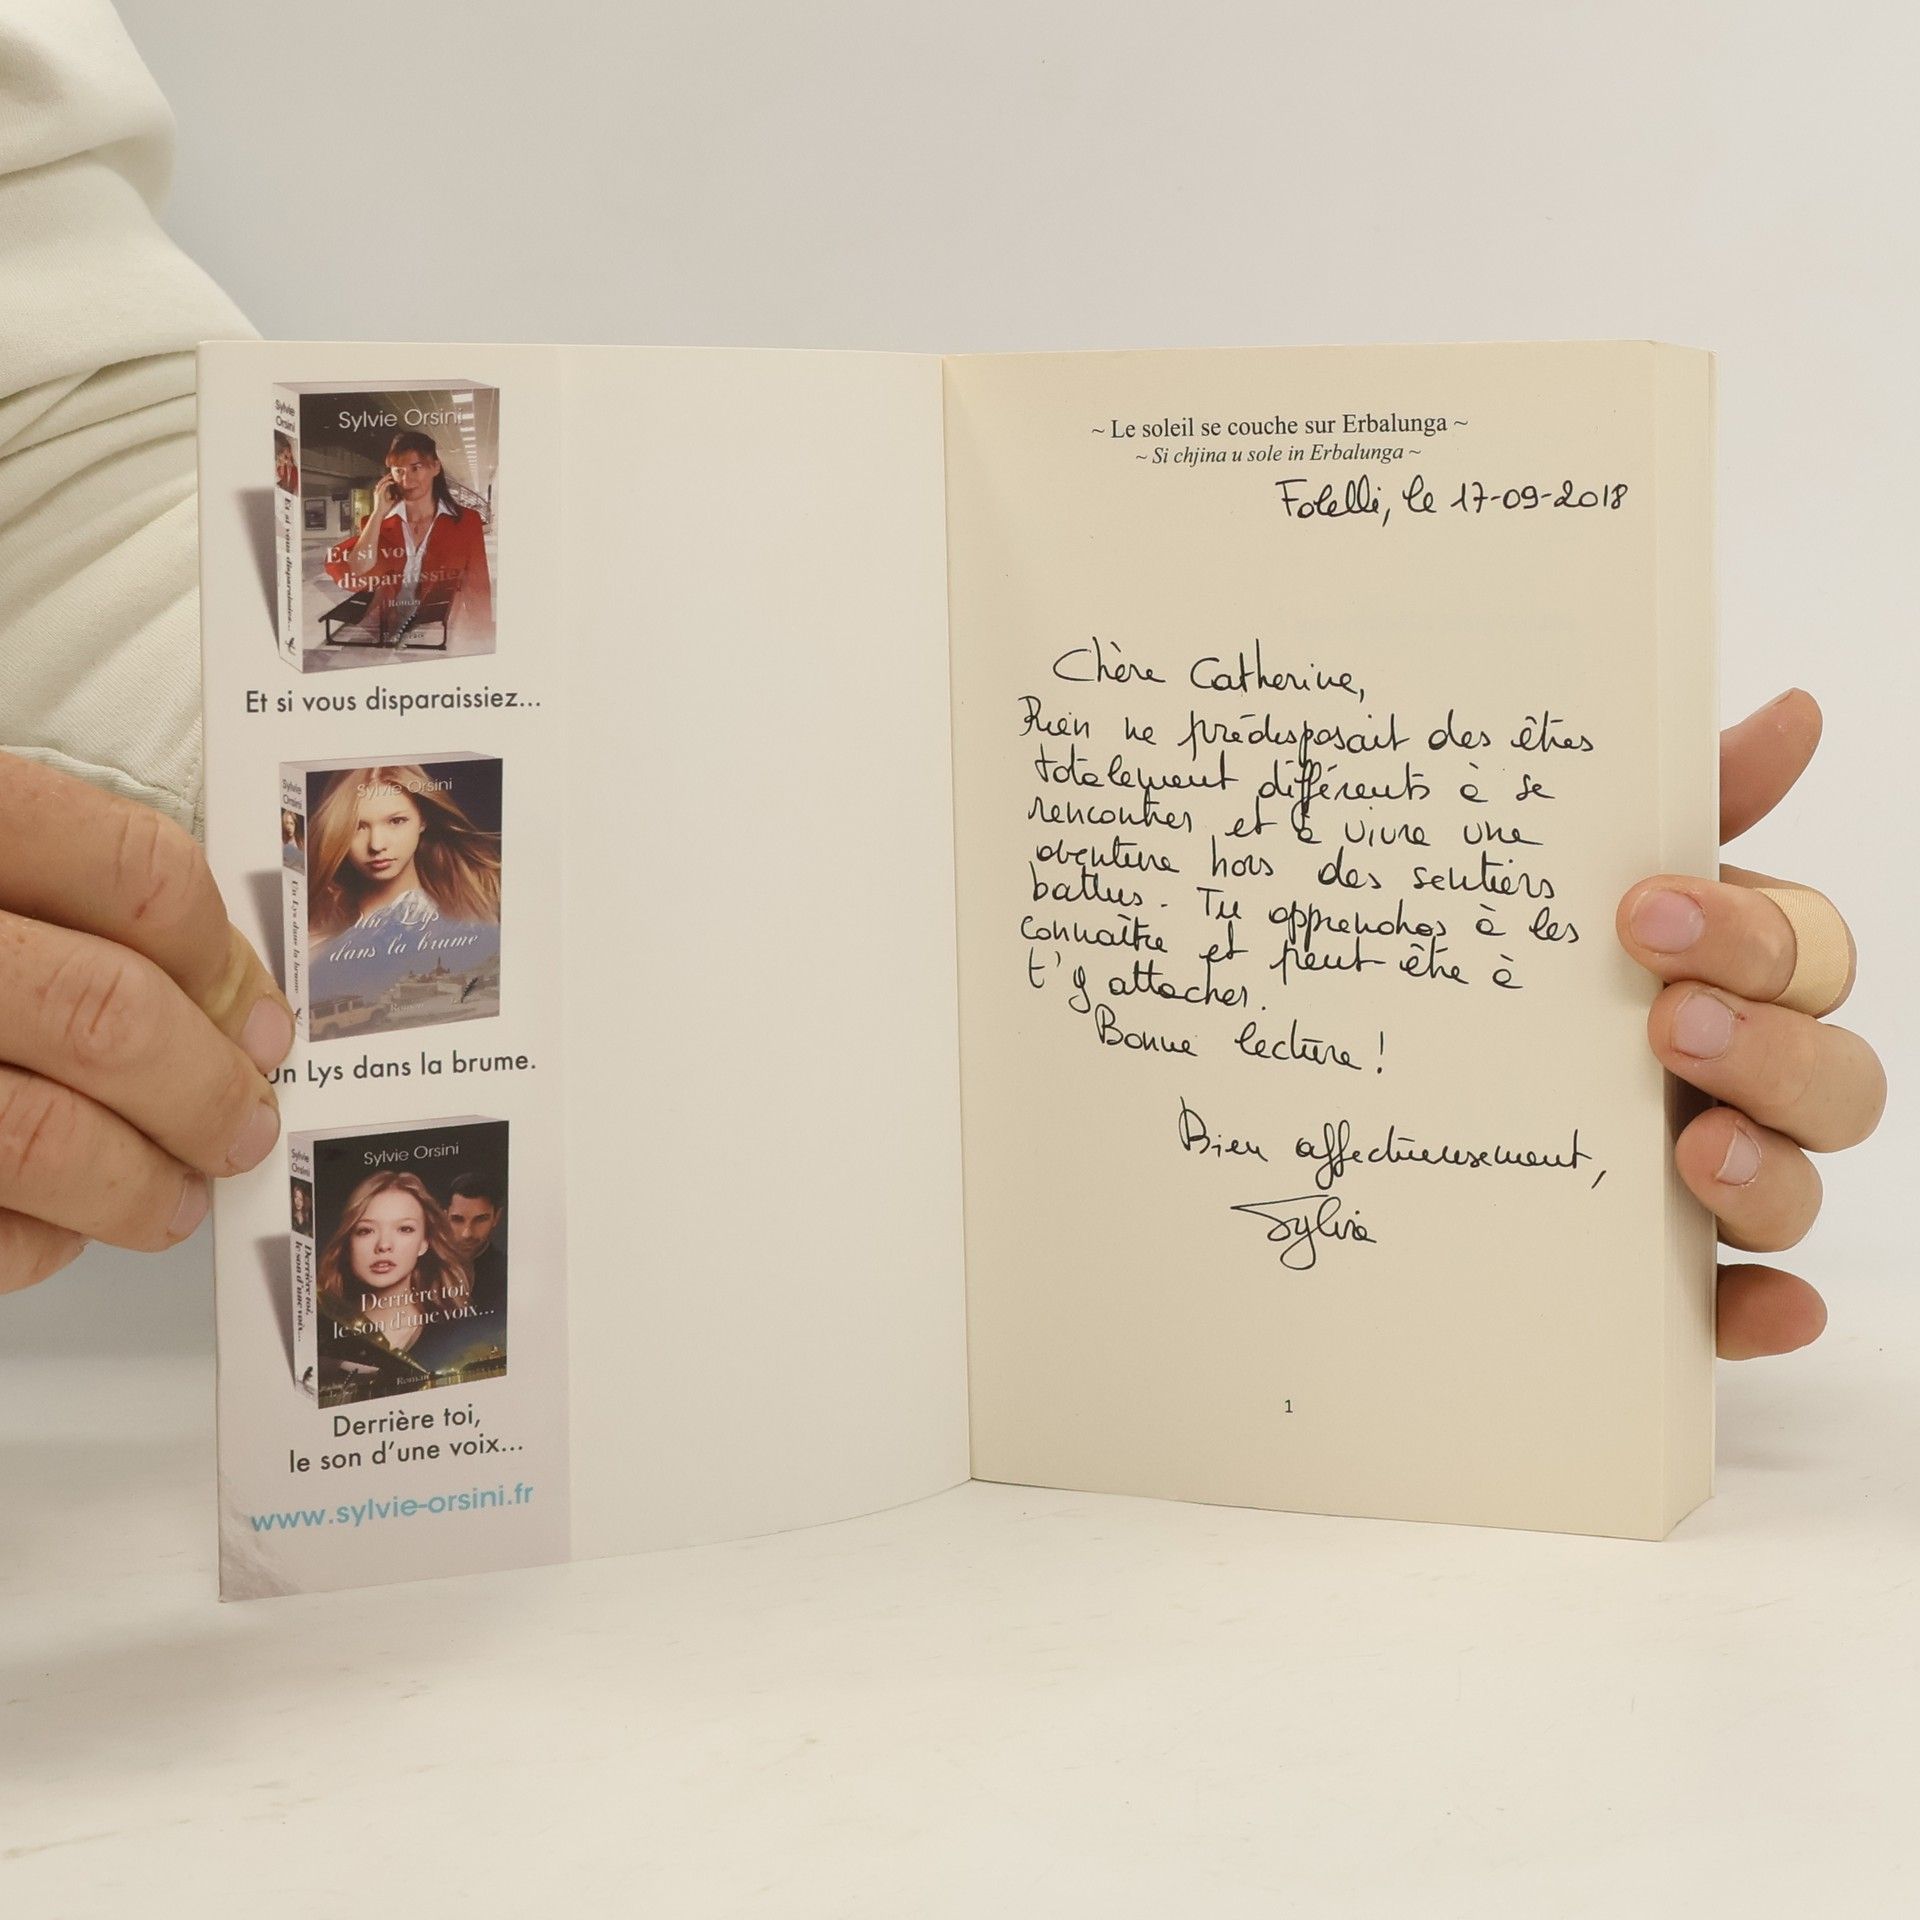 Sylvie Orsini
Sylvie
Orsini
Et si vous disparaissiez...
Et si vous
disparaissiez
Roman
Et si vous disparaissiez...
Sylvie Orsini
Sylvie
Orsini
Un Lys dans la brume
Un Lys
dans la brume
Roman
Un Lys dans la brume.
Sylvie Orsini
Sylvie
Orsini
Derrière toi,
le son d'une voix...
Derrière toi,
le son d'une voix...
Roman
Derrière toi,
le son d'une voix...
www.sylvie-orsini.fr
~ Le soleil se couche sur Erbalunga ~
~ Si chjina u sole in Erbalunga ~
Folelli, le 17-09-2018
Chère Catherine,
Rien ne prédisposait des êtres
totalement différents à se
rencontrer et à vivre une
aventure hors des sentiers
battus. Tu apprendras à les
connaître et peut être à
t'y attacher.
Bonne lecture !
Bien affectueusement,
Sylvie
1